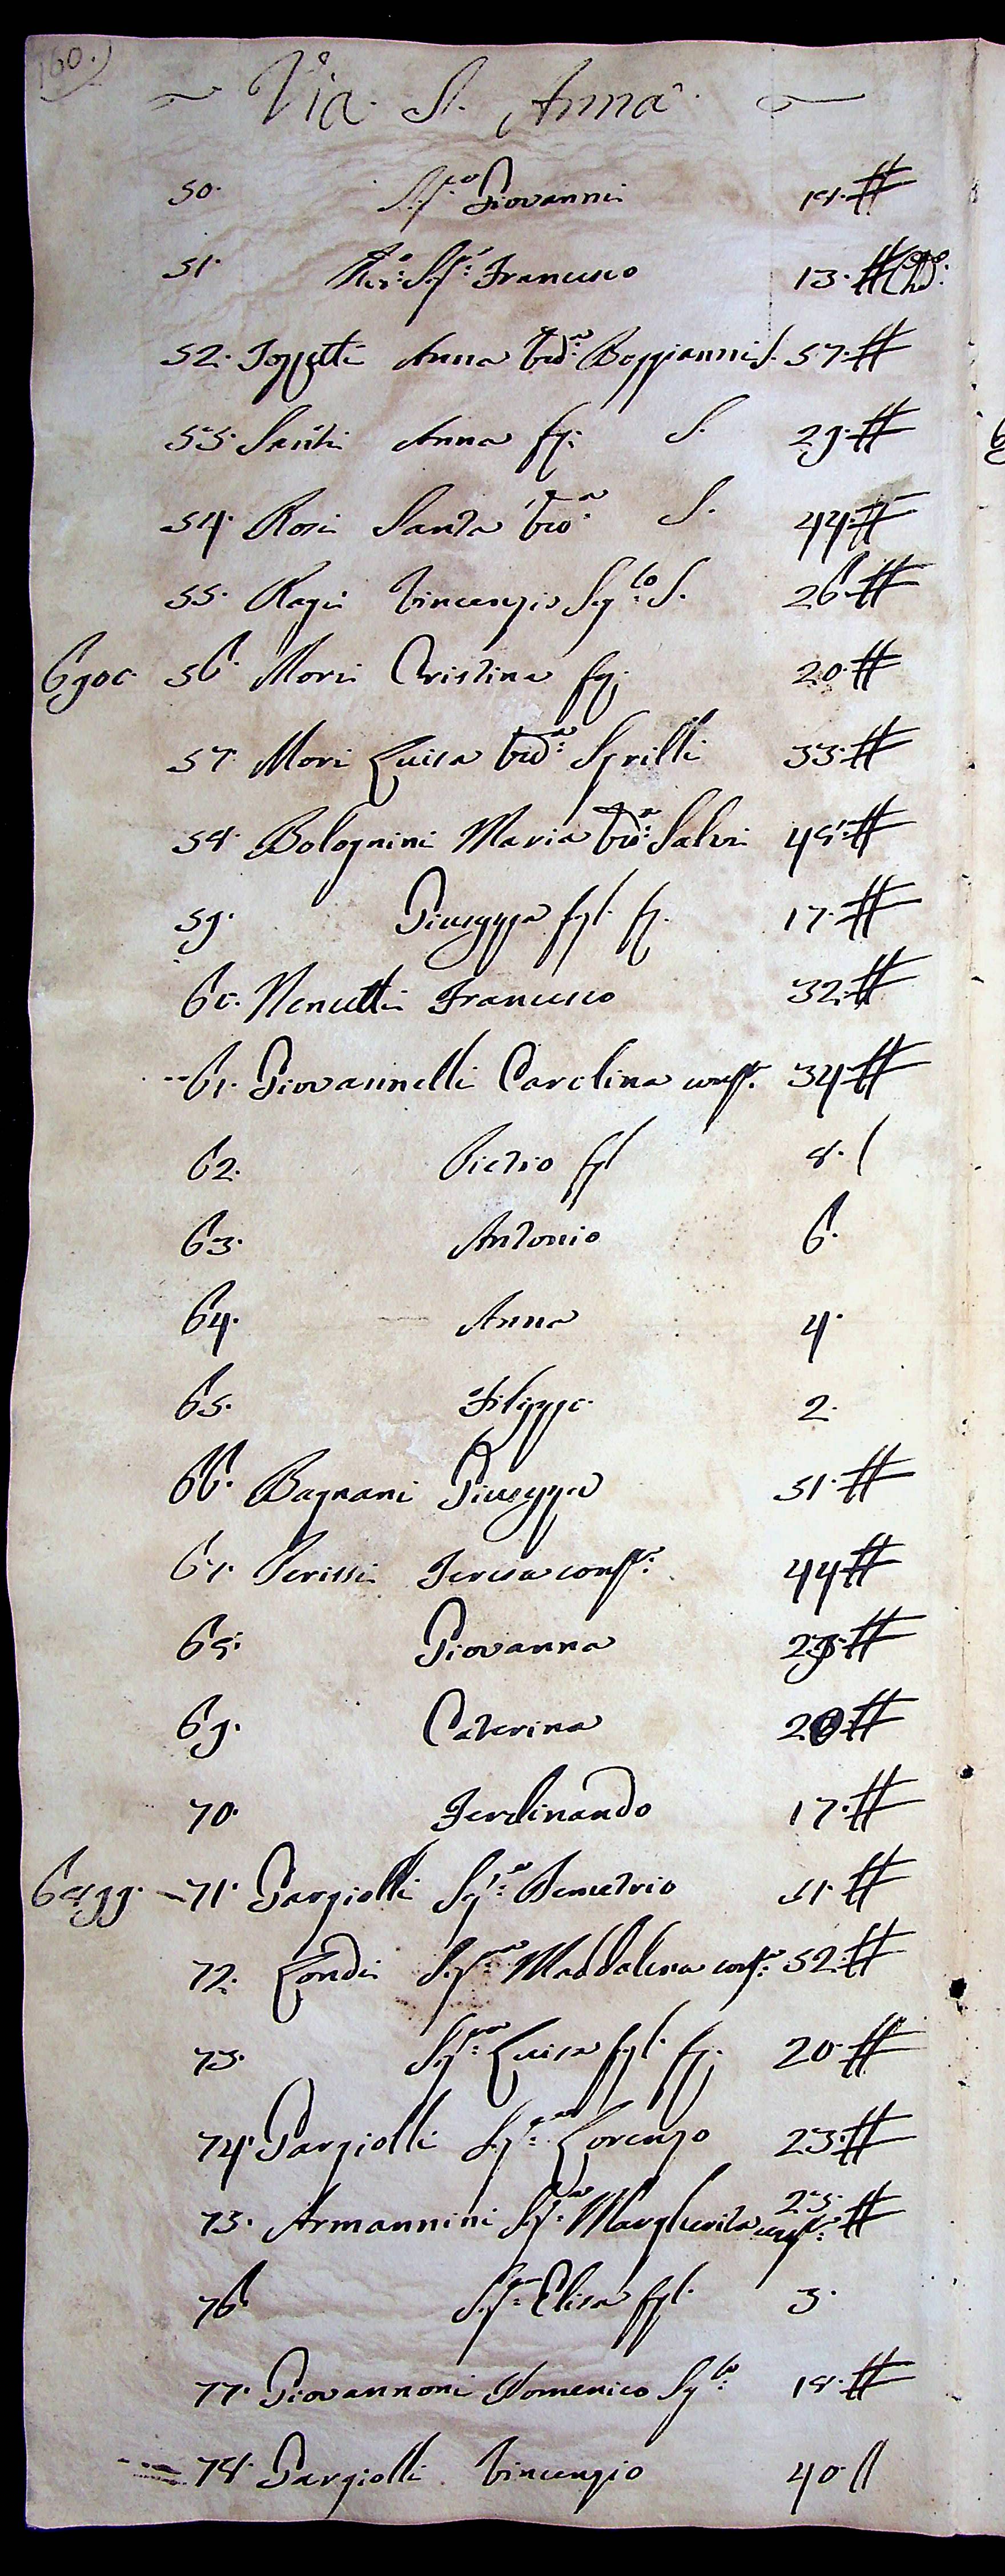 160.)
Via S. Anna
50. Sig.co Giovanni 18.#
51. Sig.e Francesco 13.#
52. Anna Ved.a Boggianni S. 57.#
53. Santi Anna fg. S. 29.#
54. Rosi Santa Ved.a S. 44.#
55. Ragi Vincenzio Sg.lo S. 26.#
56. Mori Cristina fg. 20.#
57. Mori Luisa Ved.a 33.#
58. Bolognini Maria Ved.a Salvi 48.#
59. Giuseppa fgl. fg. 17.#
60. Nencetti Francesco 32.#
61. Giovannelli Carolina 34.#
62. Pietro fgl 8. (
63. Antonio 6.
64. Anna 4.
65. Filippo 2.
66. Bagnani Giuseppe 51.#
67. Perissi Teresa 44.#
68. Giovanna #
69. Caterina #
70. Ferdinando 17.#
71. Gargiolli Sig.re Demetrio 51.#
72. Londi Sig.ra Maddalena 52.#
73. Sig.ra Luisa fgl. fg. 20.#
74. Gargiolli Sig.re Lorenzo 23.#
75. Armannini Sig.ra Margherita 25.#
76. Sig.ra Elisa fgl. 3.
77. Giovannoni Domenico Sg.lo 18.#
78. Gargiolli Vincenzio 40. //